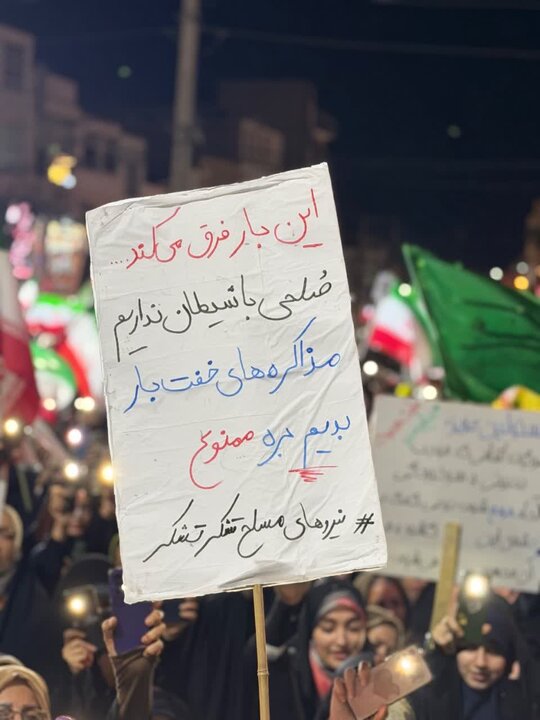 این بار فرق می‌کند....
صلحی با شیطان نداریم
مذاکره‌های خفت بار
بدیم بره ممنوع
# نیروهای مسلح تشکر تشکر